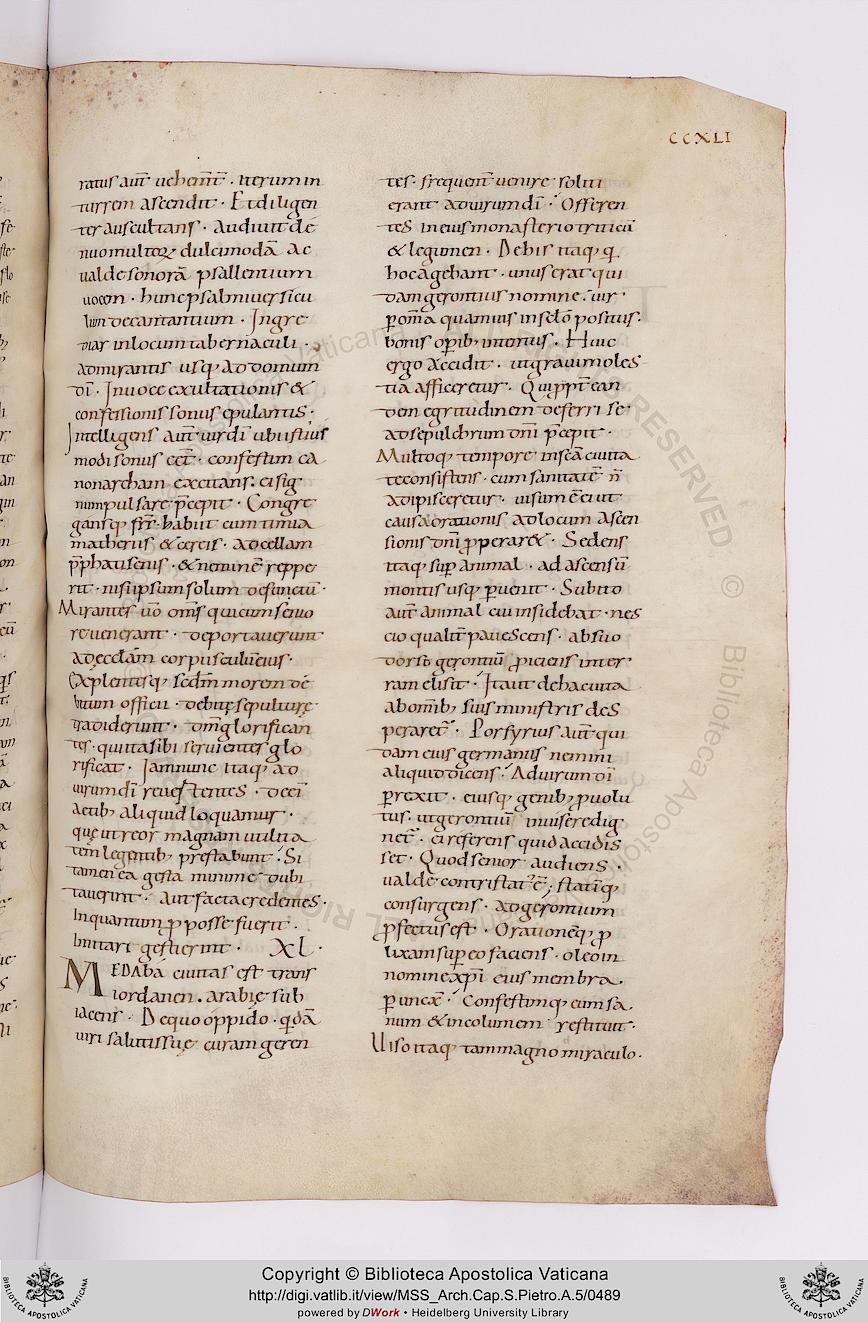 CCXLI
ratus aut̄ uehem̄t̄ · Iterum in
turrem ascendit · Et diligen
ter auscultans · audiuit de
nuo multoꝝ dulcimodā ac
ualde sonorā psallentium
uocem · hunc psalmi uersicu
lum decantantium · Ingre
diar in locum tabernaculi ·
admirantis usq; ad domum
dī · In uoce exultationis &
confessionis sonus epulantis ·
Intelligens aut̄ uir dī ubi istius
modi sonus eēt · confestim ca
nonarcham excitans · ei sig
num pulsare p̄cepit · Congre
gansq; fr̄r̄ · habiit cum timia
matherius & cereis · ad cellam
p̄phati senis · & neminē reppe
rit · nisi ipsum solum defunctū ·
Mirantes uō om̄s qui cum seruo
reuenerant · deportauerunt
ad eccl̄am corpusculū eius ·
Explentesq; scdm̄ morem de
bitum officii · debitę sepulturę
tradiderunt · dm̄ glorifican
tes · qui ita sibi seruientes glo
rificat · Iam nunc itaq; ad
uirum dī reuertentes · de ei
actib; aliquid loquamur ·
quę ut reor magnam utilita
tem legentib; prestabunt · Si
tamen ea gesta minime dubi
tauerint · aut facta credentes ·
In quantum ꝓ posse fuerit ·
Imitari gestierint · XL ·
MEDABA ciuitas est trans
iordanen · arabię sub
iacens · De quo oppido · qdā
uiri salutis suę curam geren
tes · frequent̄ uenire soliti
erant ad uirum dī · Offeren
tes in eius monasterio triticū
& legumen · De his itaq; q
hoc agebant · unus erat qui
dam gerontius nomine · uir
p om̄a quamuis in sclō positus ·
bonis opib; intentus · Huic
ergo accidit · ut graui moles
tia afficeretur · Qui ppt̄ ean
dem egritudinem deferri se
ad sepulchrum dn̄i p̄cepit ·
Multoq; tempore in sc̄a ciuita
te consistens · cum sanitatē n̄
adipisceretur · uisum ē ei ut
causa orationis ad locum ascen
sionis dn̄i properar& · Sedens
itaq; sup animal · ad ascensū
montis usq; puenit · Subito
aut̄ animal cui insidebat · nes
cio qualit̄ pauescens · ab suo
dorso gerontiū proiciens inter
ram elisit · Ita ut de hac uita
ab omib; suis ministris des
peraret̄ · Porfyrius aut̄ qui
dam eius germanus nemini
aliquid dicens · Ad uirum dī
prexit · eiusq; genib; puolu
tus · ut gerontiū inuisere dig
net̄ · ei referens quid accidis
set · Quod senior audiens ·
ualde contristat' ē; statīq;
consurgens · ad gerontium
profectus est · Orationēq; ꝓ
lixam sup eo faciens · oleo in
nomine xp̄i eius membra
punxit · Confestimq; eum sa
num & incolumem restituit ·
Uiso itaq; tam magno miraculo ·
Copyright © Biblioteca Apostolica Vaticana
http://digi.vatlib.it/view/MSS_Arch.Cap.S.Pietro.A.5/0489
powered by DWork • Heidelberg University Library